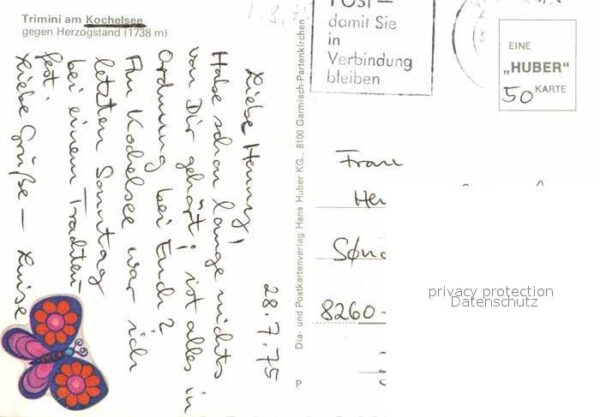 Trimini am Kochelsee
gegen Herzogstand (1738 m)
28.7.75
Liebe Henny!
Habe schon lange nichts
von Dir gehört; ist alles in
Ordnung bei Euch?
Am Kochelsee war ich
letzten Sonntag
bei einem Trachten-
fest.
Liebe Grüße – Luise
Dia- und Postkartenverlag Hans Huber KG., 8100 Garmisch-Partenkirchen
P
Post –
damit Sie
in
Verbindung
bleiben
EINE
„HUBER"
KARTE
50
Frau
He
Søn
8260-
privacy protection
Datenschutz